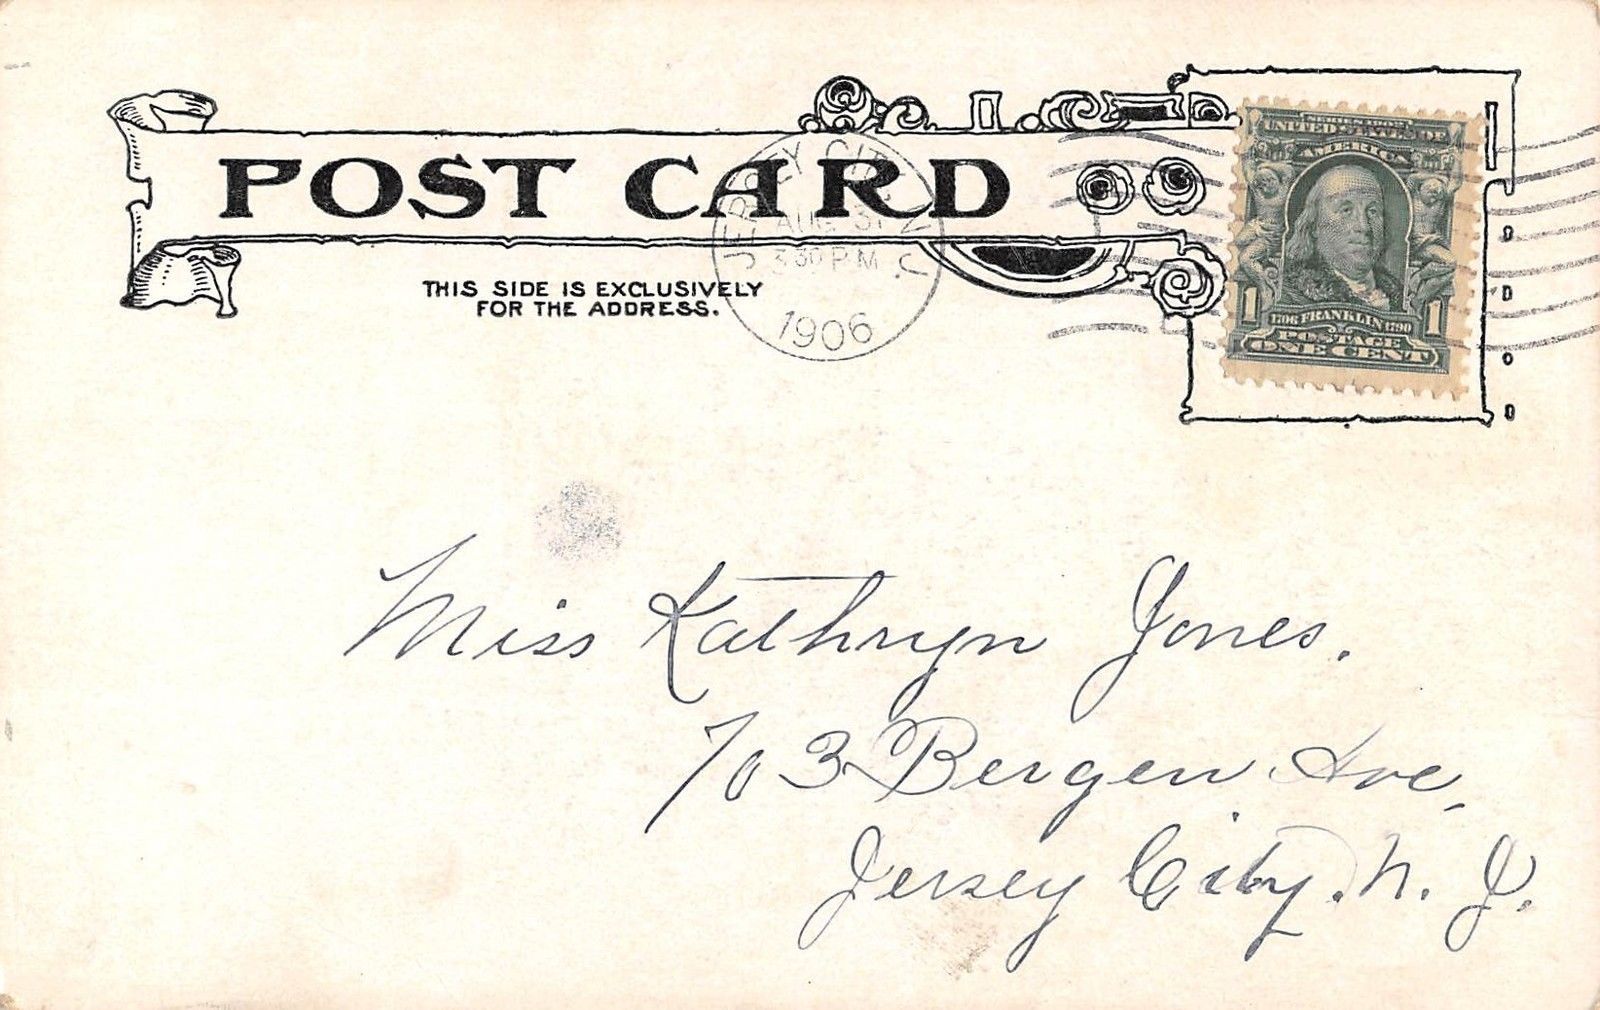 POST CARD
THIS SIDE IS EXCLUSIVELY
FOR THE ADDRESS.
JERSEY CITY, N.J.
AUG 31
3 30 P.M
1906
SERIES 1902
UNITED STATES OF
AMERICA
1 1
1706 FRANKLIN 1790
POSTAGE
ONE CENT
Miss Kathryn Jones.
703 Bergen Ave,
Jersey City. N. J.